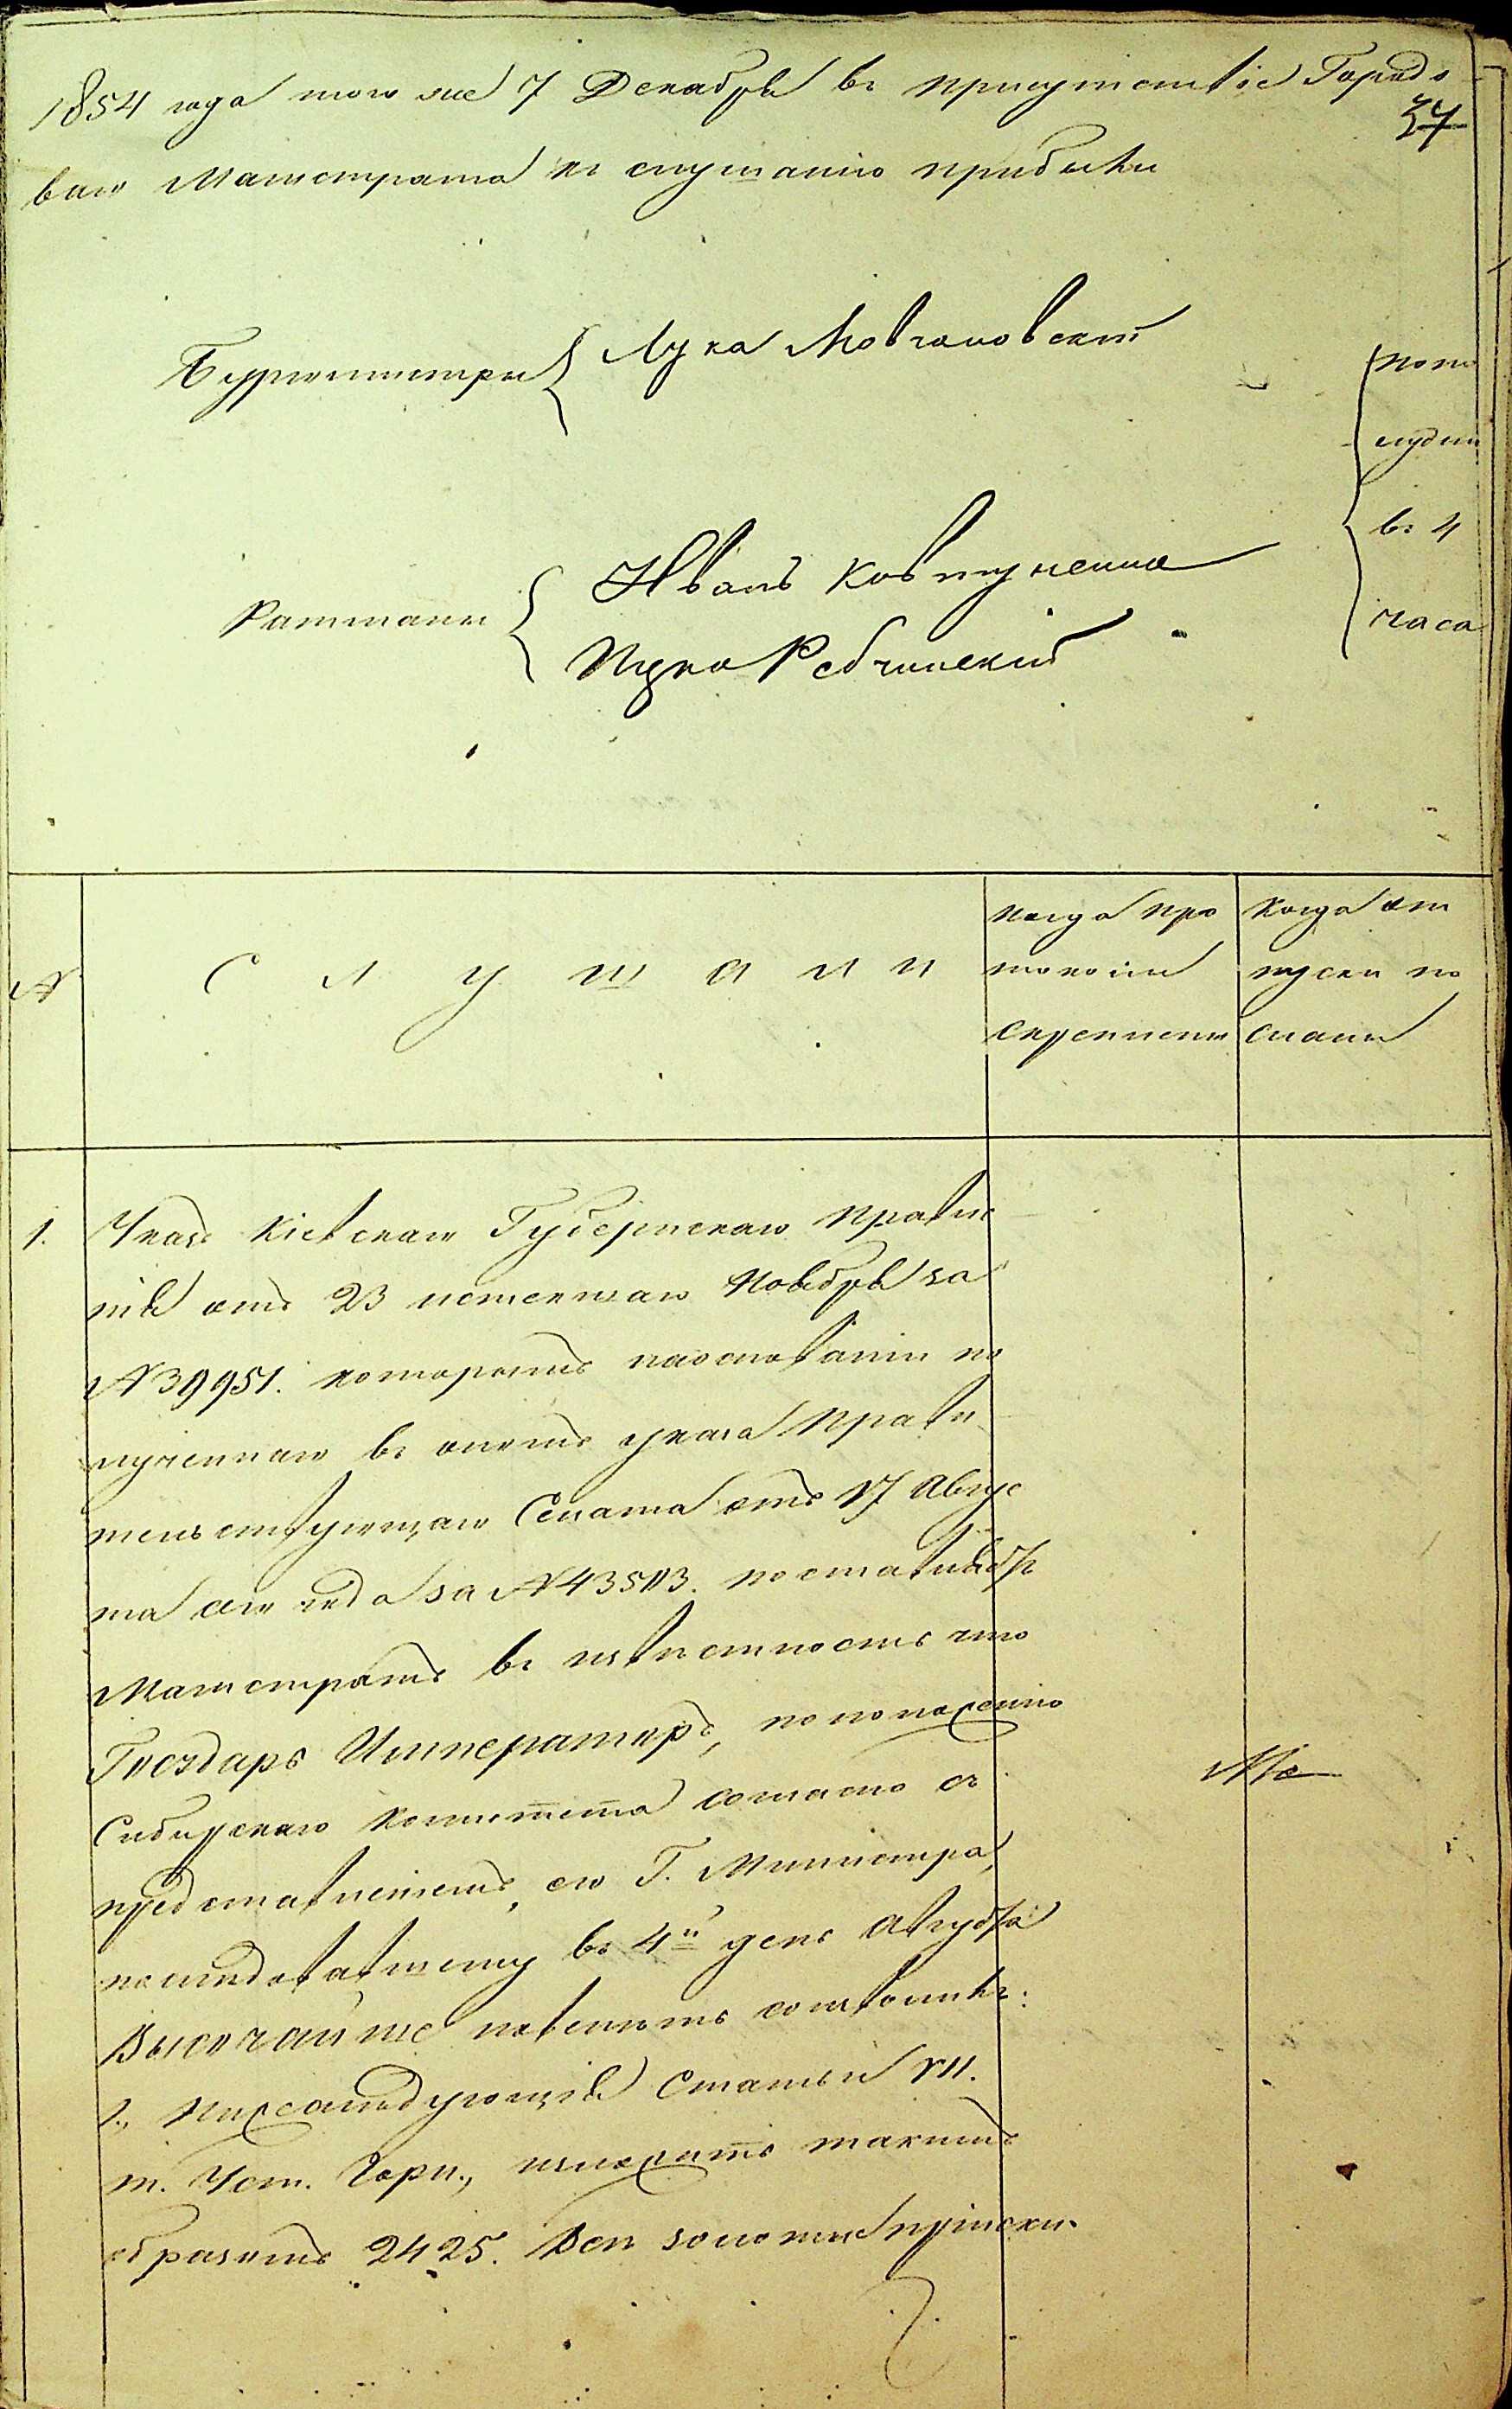 1854 года того же 7 Декабря въ присутствіе Городо
37
ваго Магистрата къ слушанію прибыли
Бургомистры { Лука Мовчановскій
по по
лудни
въ 4
часа
Ратманы { Иванъ Ковтуненко
Ицко Рабчинскій
№
Слушали
когда про
токолы
скреплены
когда от
пуски по
сланы
1. Указъ Кіевскаго Губернскаго Правле
нія отъ 23 истекшаго Ноября за
№ 39951. которымъ на основаніи по
лученнаго въ ономъ указа Прави
тельствующаго Сената отъ 17 Авгус
та сего года за № 43503. поставляетъ
Магистратъ въ извѣстность что
Государь Императоръ, по положенію
Сибирскаго Комитета согласно съ
представленіемъ, его Г. Министра,
последовавшему въ 4й день Августа
Высочайше повелѣть соизволилъ:
1., Нижеслѣдующія Статьи VII.
т. Уст. Горн., изложить такимъ
образомъ 2425. Всѣ золотые пріиски